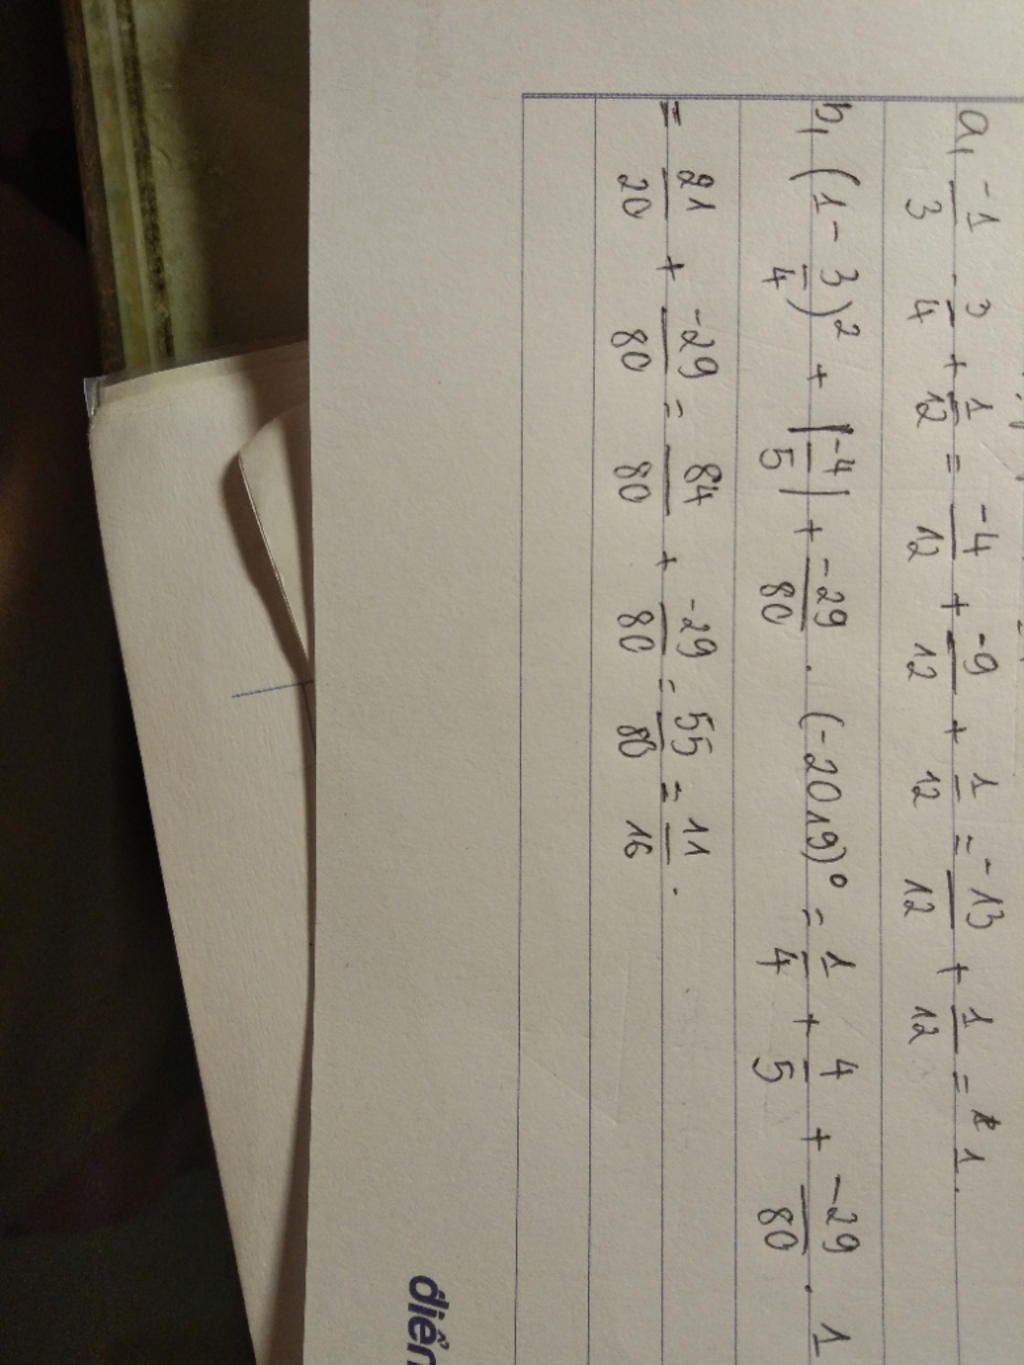 a, -1/3 - 3/4 + 1/12 = -4/12 + -9/12 + 1/12 = -13/12 + 1/12 = -1.
b, (1 - 3/4)² + |-4/5| + -29/80 . (-2019)⁰ = 1/4 + 4/5 + -29/80 . 1
= 21/20 + -29/80 = 84/80 + -29/80 = 55/80 = 11/16 .